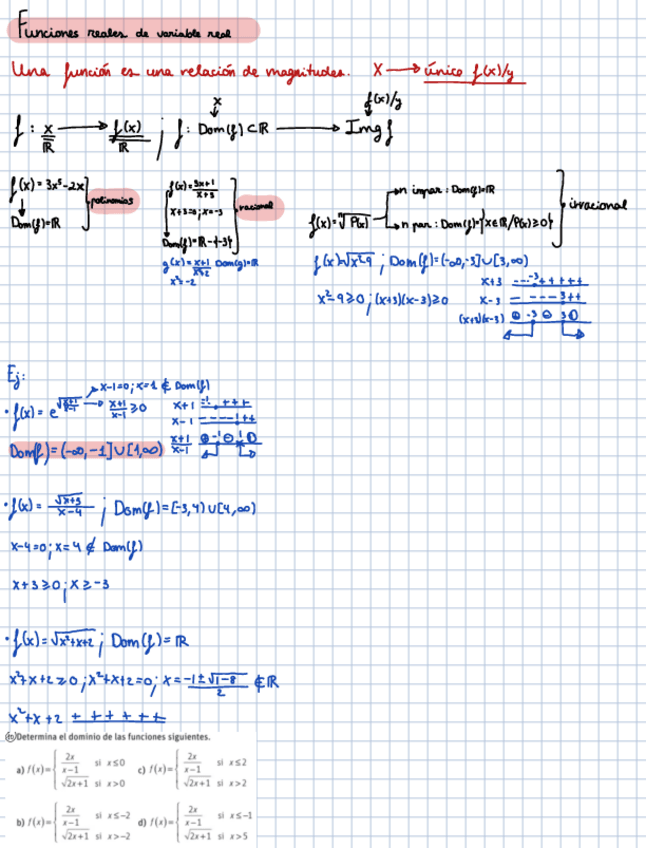 Funciones reales de variable real
Una función es una relación de magnitudes. X → único f(x)/y
f : x/ℝ → f(x)/ℝ ; f : Dom(f) ⊂ ℝ → Img f
x ↓ f(x)/y ↓
f(x) = 3x⁵-2x
↓
Dom(f)=ℝ
polinomios
f(x)=3x+1/x+3
x+3=0; x=-3
↓
Dom(f)=ℝ-{-3}
racional
g(x)=x+1/x²+2 Dom(g)=ℝ
x²=-2
f(x)=ⁿ√P(x)
→ n impar : Dom(f)=ℝ
→ n par : Dom(f)={x∈ℝ/P(x)≥0}
irracional
f(x)=√x²-9 ; Dom(f)=(-∞,-3]∪[3,∞)
x²-9≥0 ; (x+3)(x-3)≥0
x+3 ----3+++++
x-3 - ---3++
(x+3)(x-3) ⊕ -3 ⊖ 3 ⊕
Ej:
· f(x) = e^√(x+1/x-1) → x-1=0; x=1 ∉ Dom(f)
→ x+1/x-1 ≥0
x+1 -1 +++
x-1 ----1++
x+1/x-1 ⊕ -1 ⊖ 1 ⊕
Dom(f) = (-∞,-1]∪[1,∞)
· f(x) = √x+3/x-4 ; Dom(f)=[-3,4)∪(4,∞)
x-4=0; x=4 ∉ Dom(f)
x+3≥0; x≥-3
· f(x)=√x²+x+2 ; Dom(f)=ℝ
x²+x+2≥0 ; x²+x+2=0; x=-1±√1-8/2 ∉ℝ
x²+x+2 ++++++
Determina el dominio de las funciones siguientes.
a) f(x)={ 2x/x-1 si x≤0
√2x+1 si x>0
c) f(x)={ 2x/x-1 si x≤2
√2x+1 si x>2
b) f(x)={ 2x/x-1 si x≤-2
√2x+1 si x>-2
d) f(x)={ 2x/x-1 si x≤-1
√2x+1 si x>5